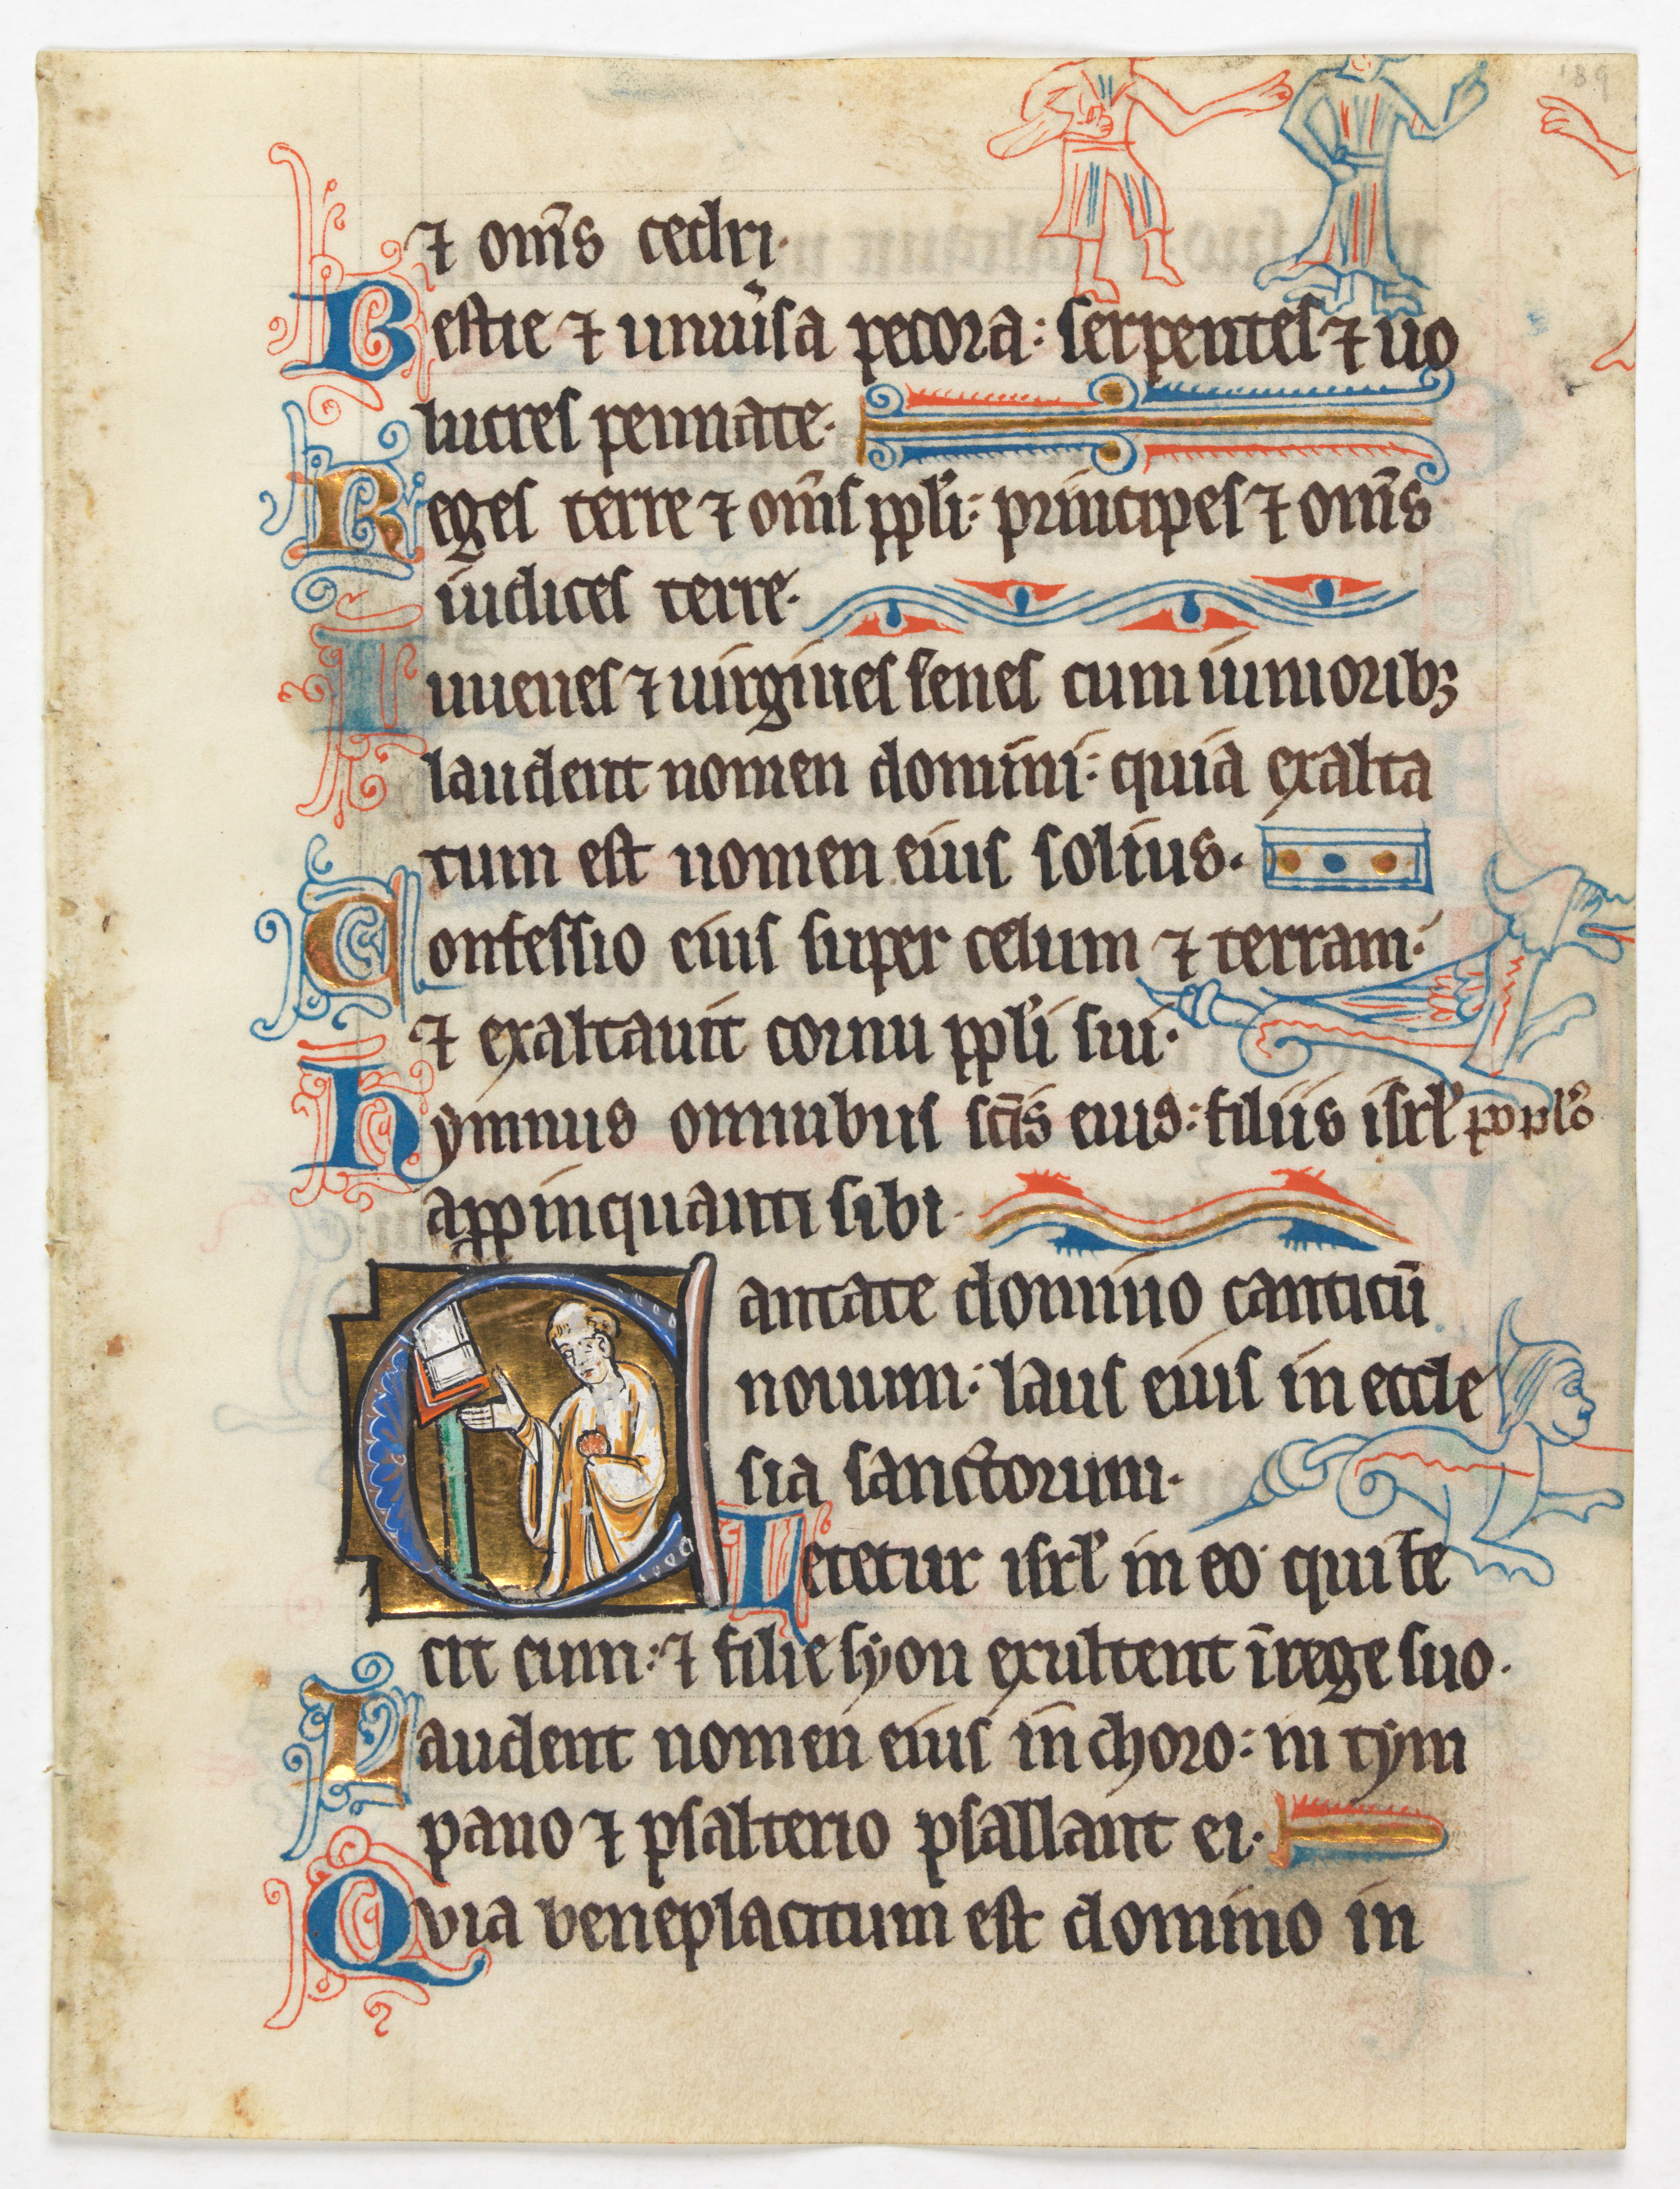 ⁊ om̅s cedri.
Bestie ⁊ uniuͥsa pecora: serpentes ⁊ uo
lucres pennate.
Reges terre ⁊ om̅s ppl̓i: principes ⁊ om̅s
iudices terre.
Iuuenes ⁊ uirgines senes cum iunioribꝫ
laudent nomen domini: quia exalta
tum est nomen eius solius.
Confessio eius super celum ⁊ terram:
⁊ exaltauit cornu ppl̓i sui.
Hymnus omnibus sc̅is eius: filiis isrl̓ poplo
appinquanti sibi.
Cantate domino canticū
nouum: laus eius in eccle
sia sanctorum.
Letetur isrl̓ in eo qui fe
cit eum: ⁊ filie syon exultent ī rege suo.
Laudent nomen eius in choro: in tym
pano ⁊ psalterio psallant ei.
Quia beneplacitum est domino in
189